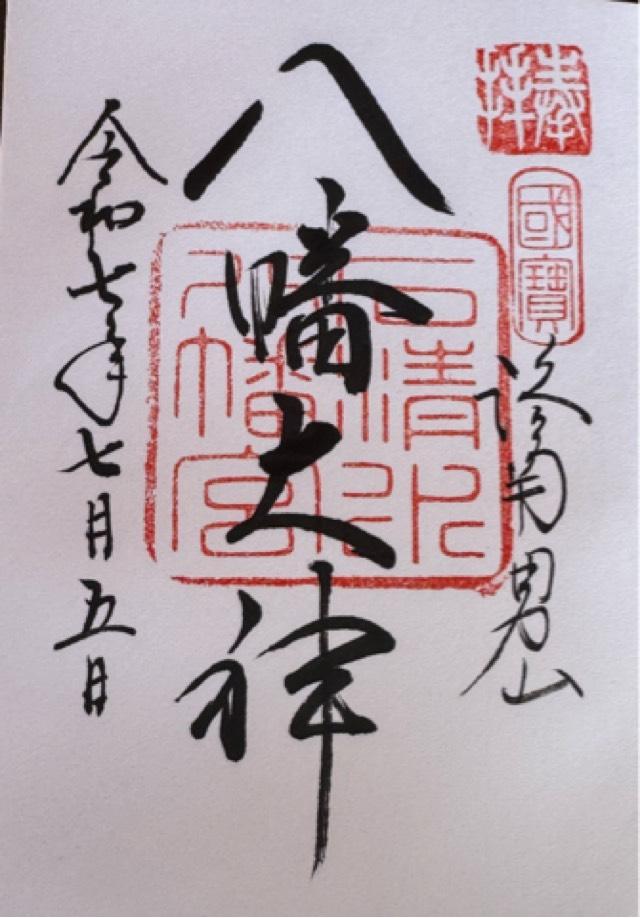 奉拝
國寶
洛南男山
八幡大神
石清水
八幡宮
令和七年七月五日